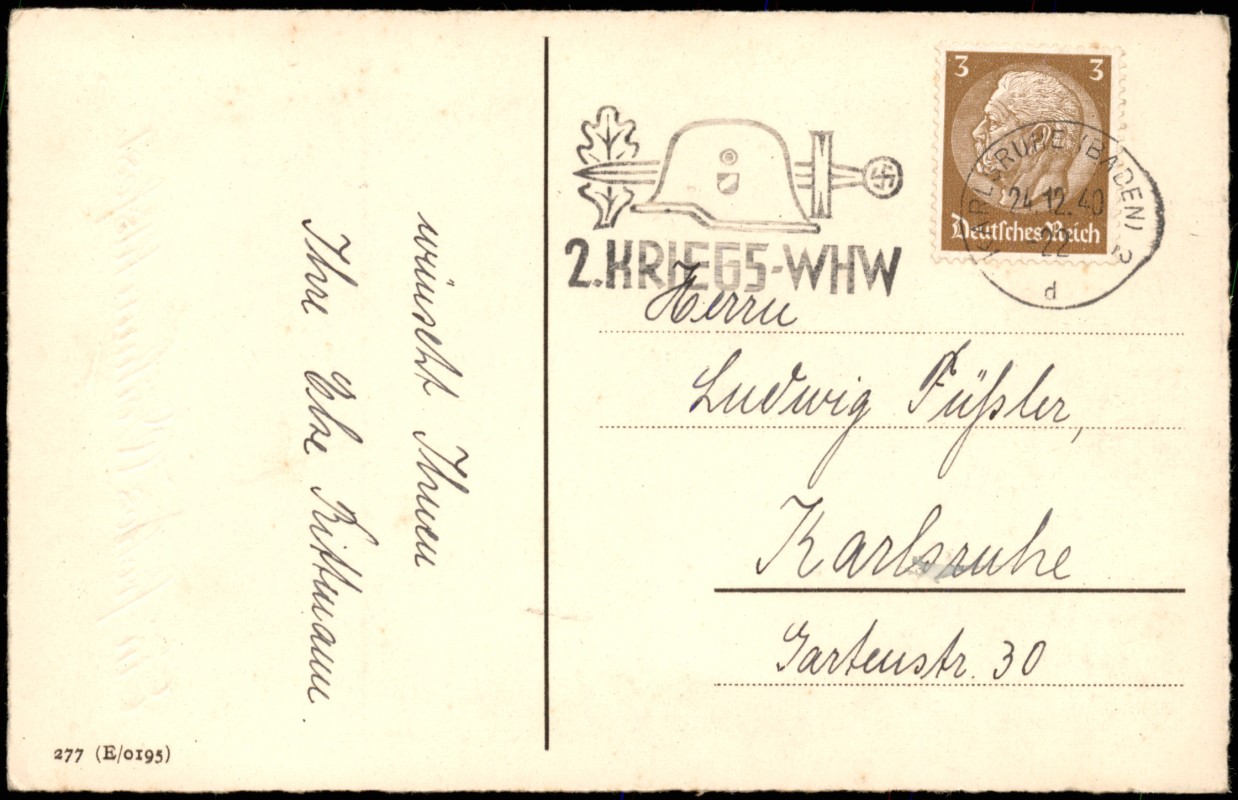 wünscht Ihnen
Ihre Else Rittmann.
277 (E/0195)
2. KRIEGS-WHW
3 3
Deutsches Reich
KARLSRUHE (BADEN) 2
24.12.40
22
d
Herrn
Ludwig Füßler,
Karlsruhe
Gartenstr. 30